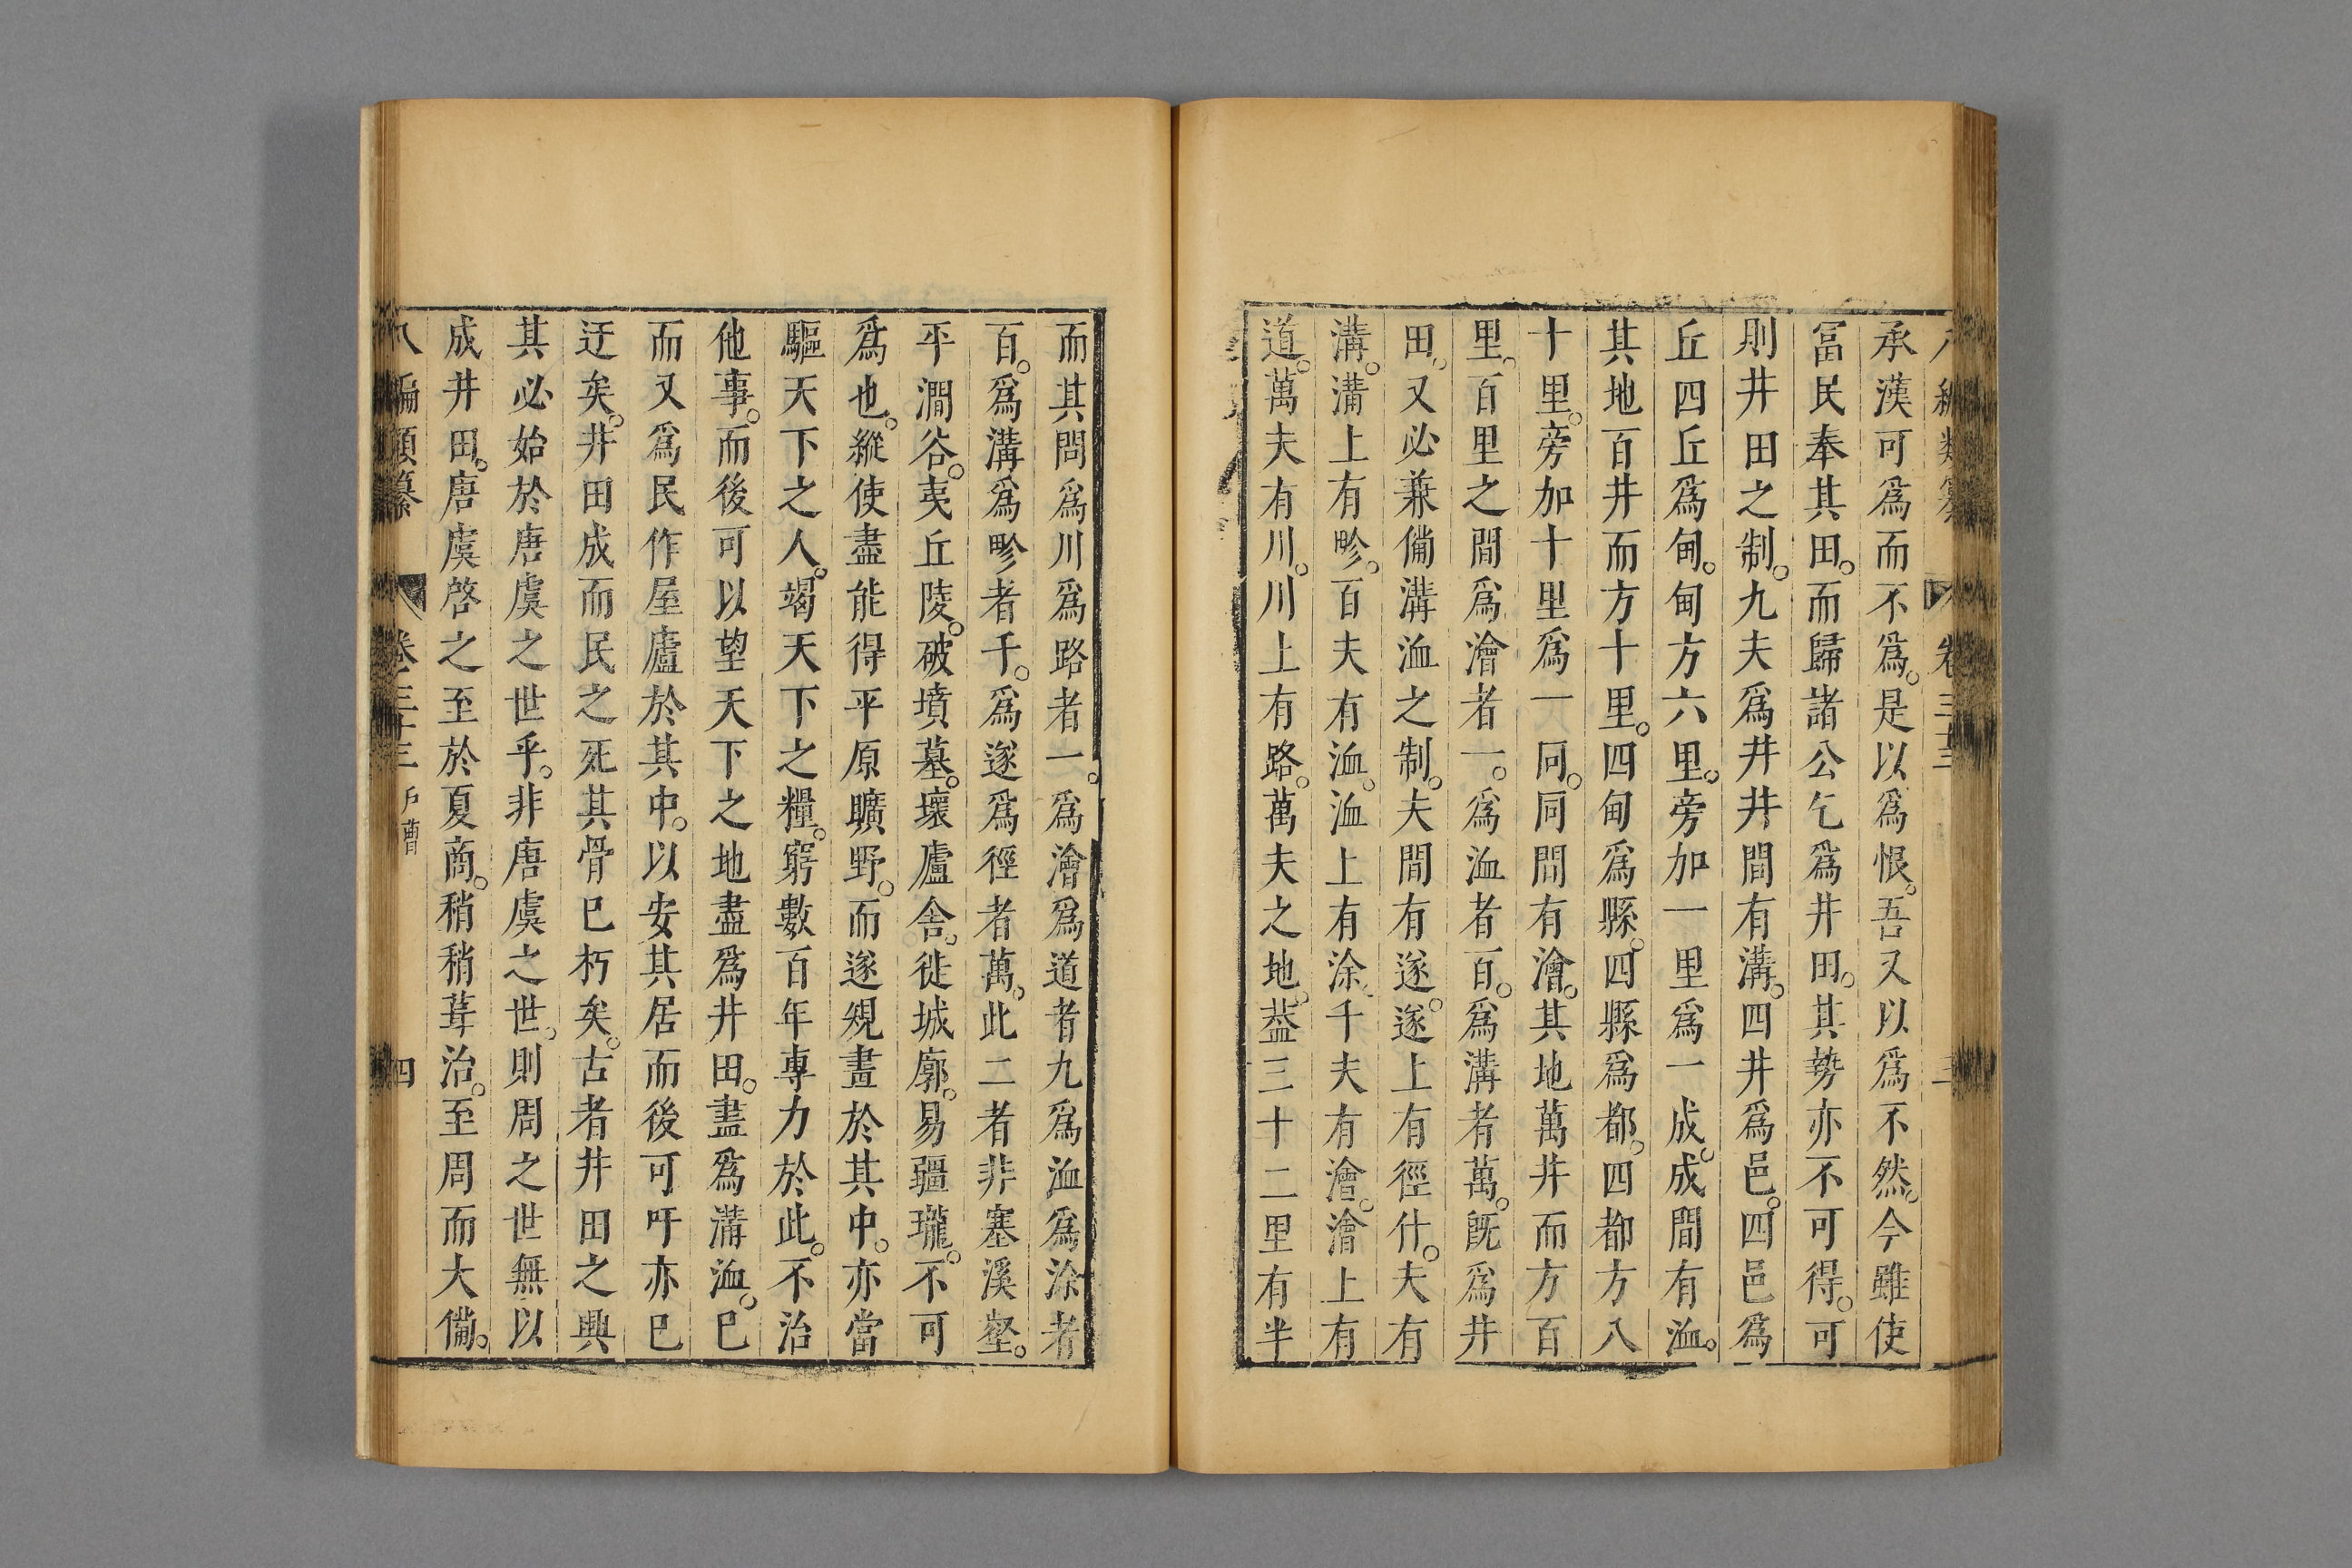 承漢可爲而不爲。是以爲恨。吾又以爲不然。今雖使
冨民奉其田。而歸諸公乞爲井田。其勢亦不可得。可
則井田之制。九夫爲井井間有溝。四井爲邑。四邑爲
丘四丘爲甸。甸方六里。旁加一里爲一成。成間有洫。
其地百井而方十里。四甸爲縣。四縣爲都。四都方八
十里。旁加十里爲一同。同間有澮。其地萬井而方百
里。百里之間爲澮者一。爲洫者百。爲溝者萬。旣爲井
田。又必兼備溝洫之制。夫間有遂。遂上有徑什。夫有
溝。溝上有畛。百夫有洫。洫上有涂。千夫有澮。澮上有
道。萬夫有川。川上有路。萬夫之地。葢三十二里有半
而其間爲川爲路者一。爲澮爲道者九爲洫爲涂者
百。爲溝爲畛者千。爲遂爲徑者萬。此二者非塞溪壑。
平澗谷。夷丘陵。破墳墓。壞廬舍。徙城廓。易疆瓏。不可
爲也。縱使盡能得平原曠野。而遂規畫於其中。亦當
驅天下之人。竭天下之糧。窮數百年專力於此。不治
他事。而後可以望天下之地盡爲井田。盡爲溝洫。已
而又爲民作屋廬於其中。以安其居而後可吁亦已
迂矣。井田成而民之死其骨已朽矣。古者井田之興
其必始於唐虞之世乎。非唐虞之世。則周之世無以
成井田。唐虞啓之至於夏商。稍稍葺治。至周而大備。
八編類纂 卷三十三 戶曹 四